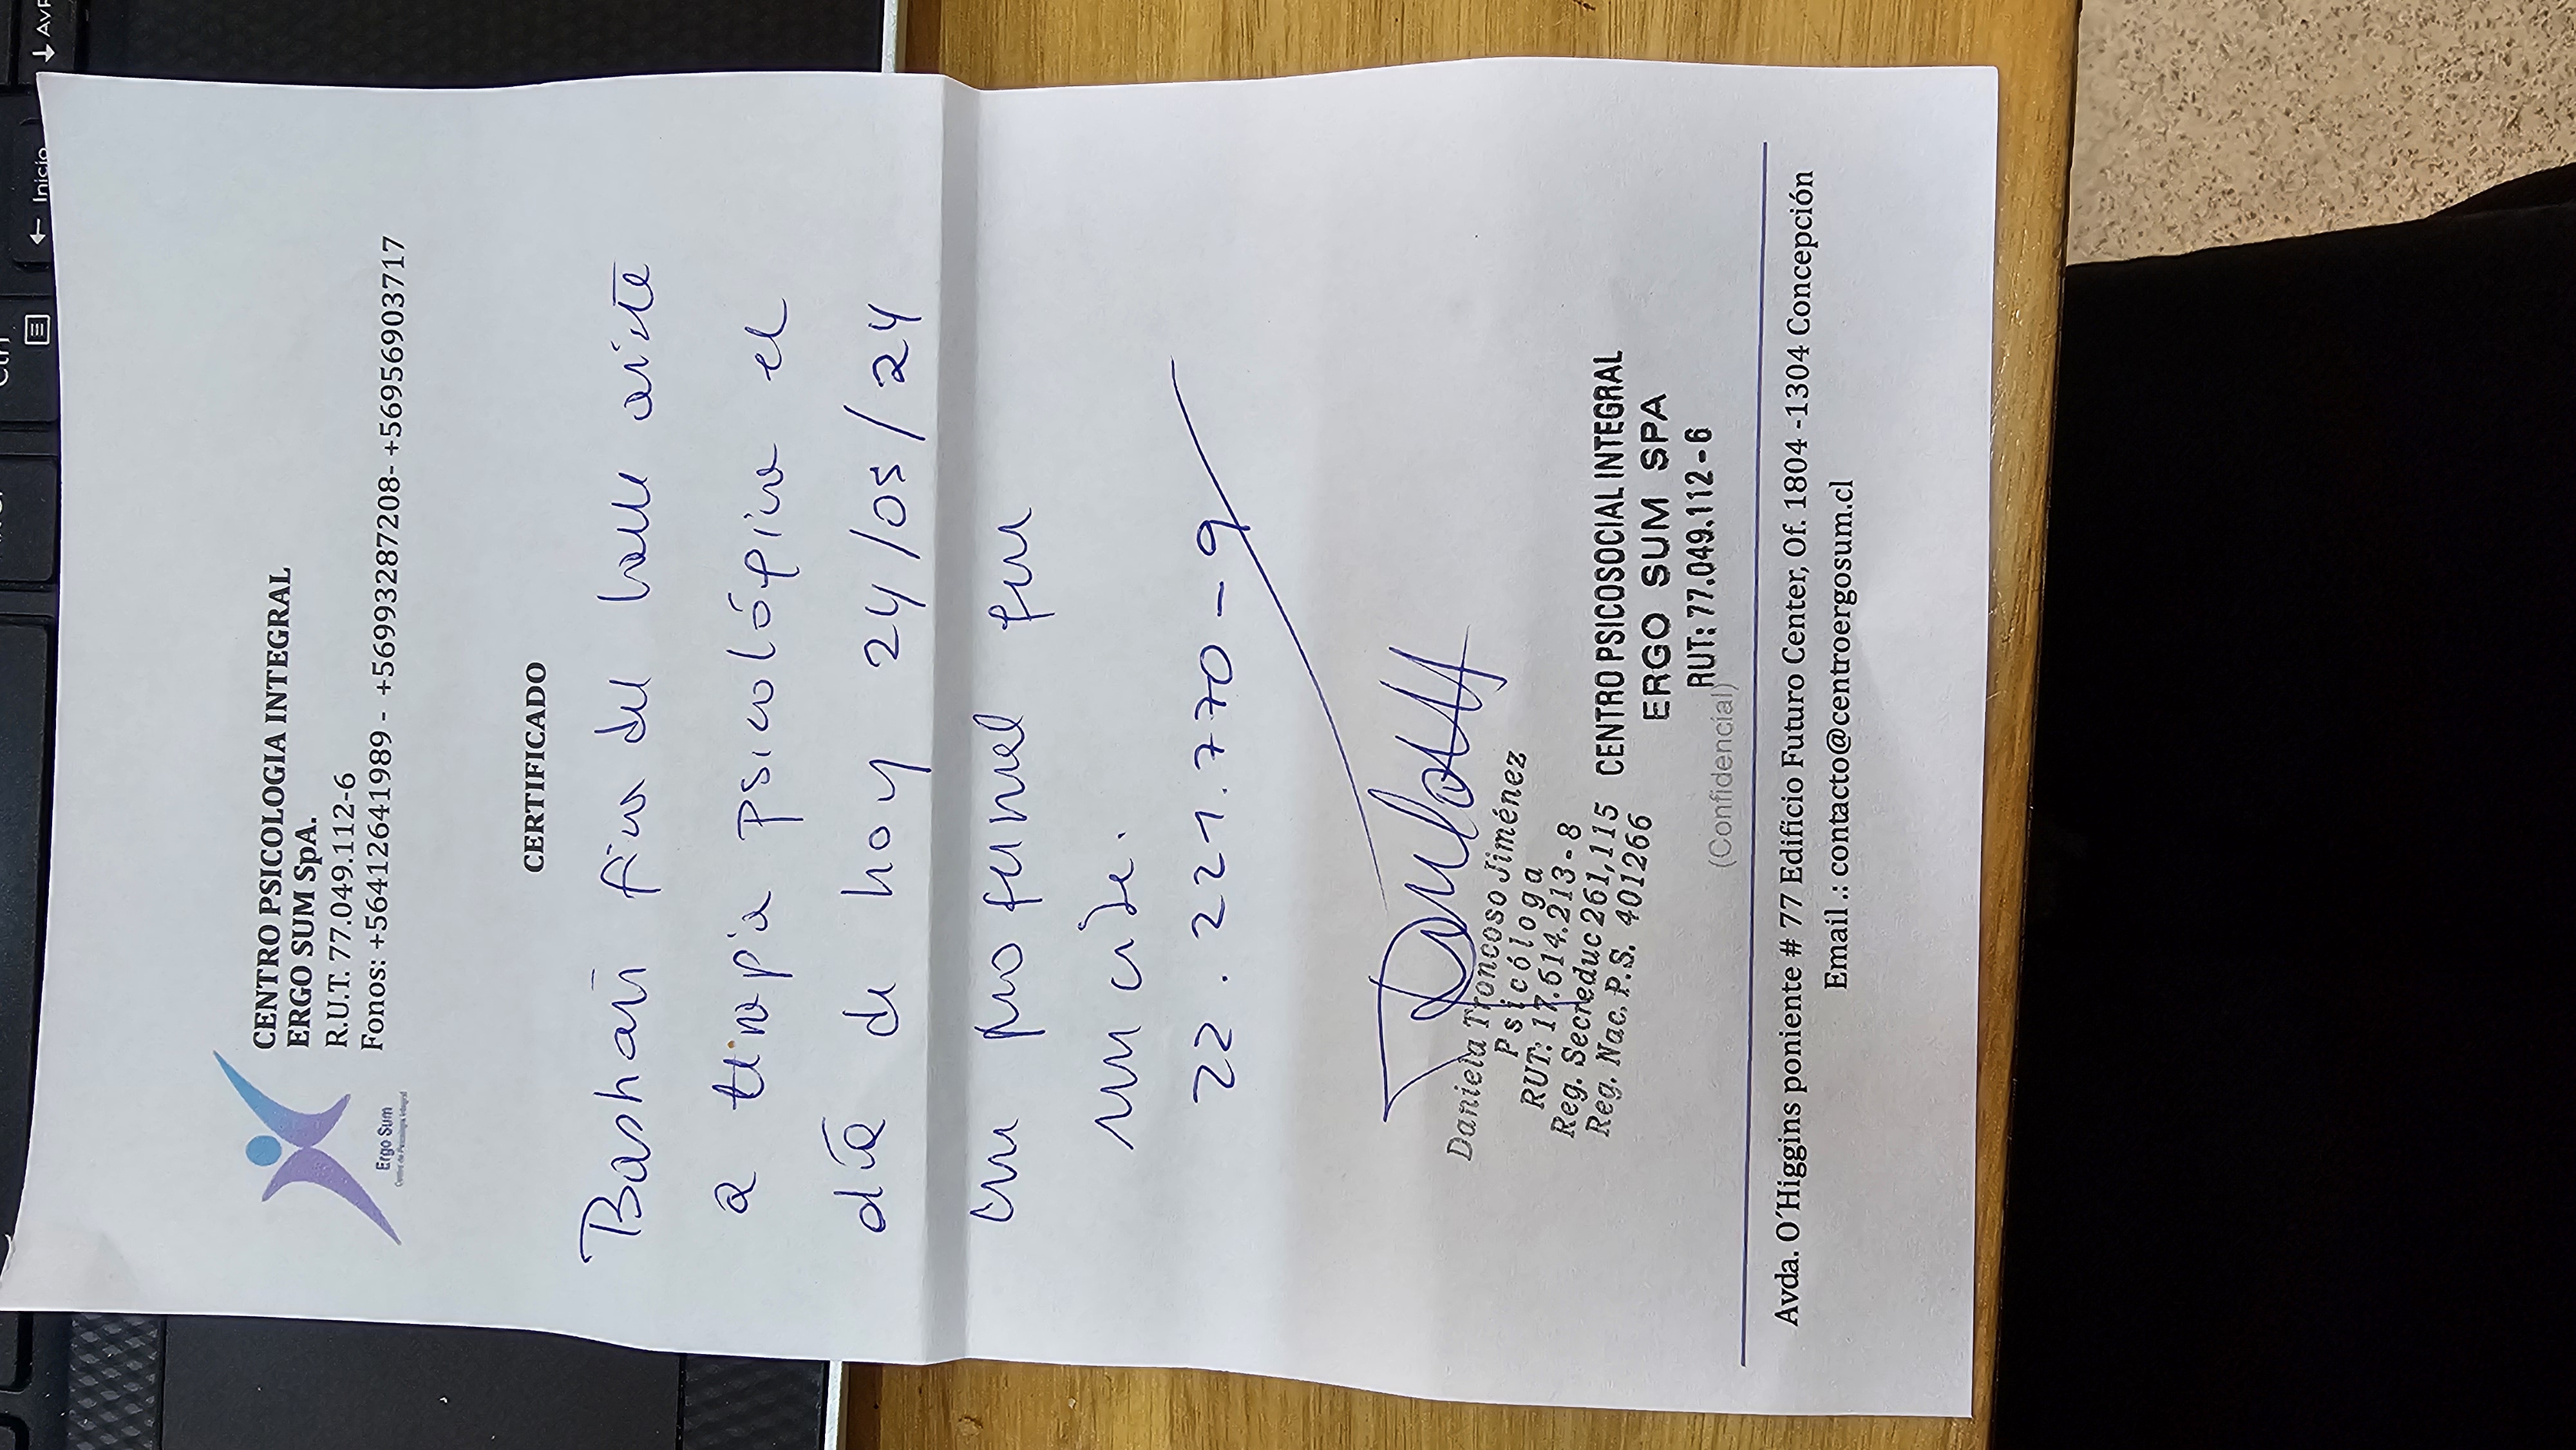 CENTRO PSICOLOGIA INTEGRAL
ERGO SUM SpA.
R.U.T. 77.049.112-6
Fonos: +56412641989 - +56993287208- +56956903717
Ergo Sum
Centro de Psicología Integral
CERTIFICADO
asiste
a terapia psicológica el
día de hoy 24/05/24
con profesional que
suscribe.
22.221.770-9
Daniela Troncoso Jiménez
Psicóloga
RUT: 17.614.213-8
Reg. Secreduc 261,115
Reg. Nac. P.S. 401266
CENTRO PSICOSOCIAL INTEGRAL
ERGO SUM SPA
RUT: 77.049.112-6
(Confidencial)
Avda. O´Higgins poniente # 77 Edificio Futuro Center, Of. 1804 -1304 Concepción
Email .: contacto@centroergosum.cl
← Inicio